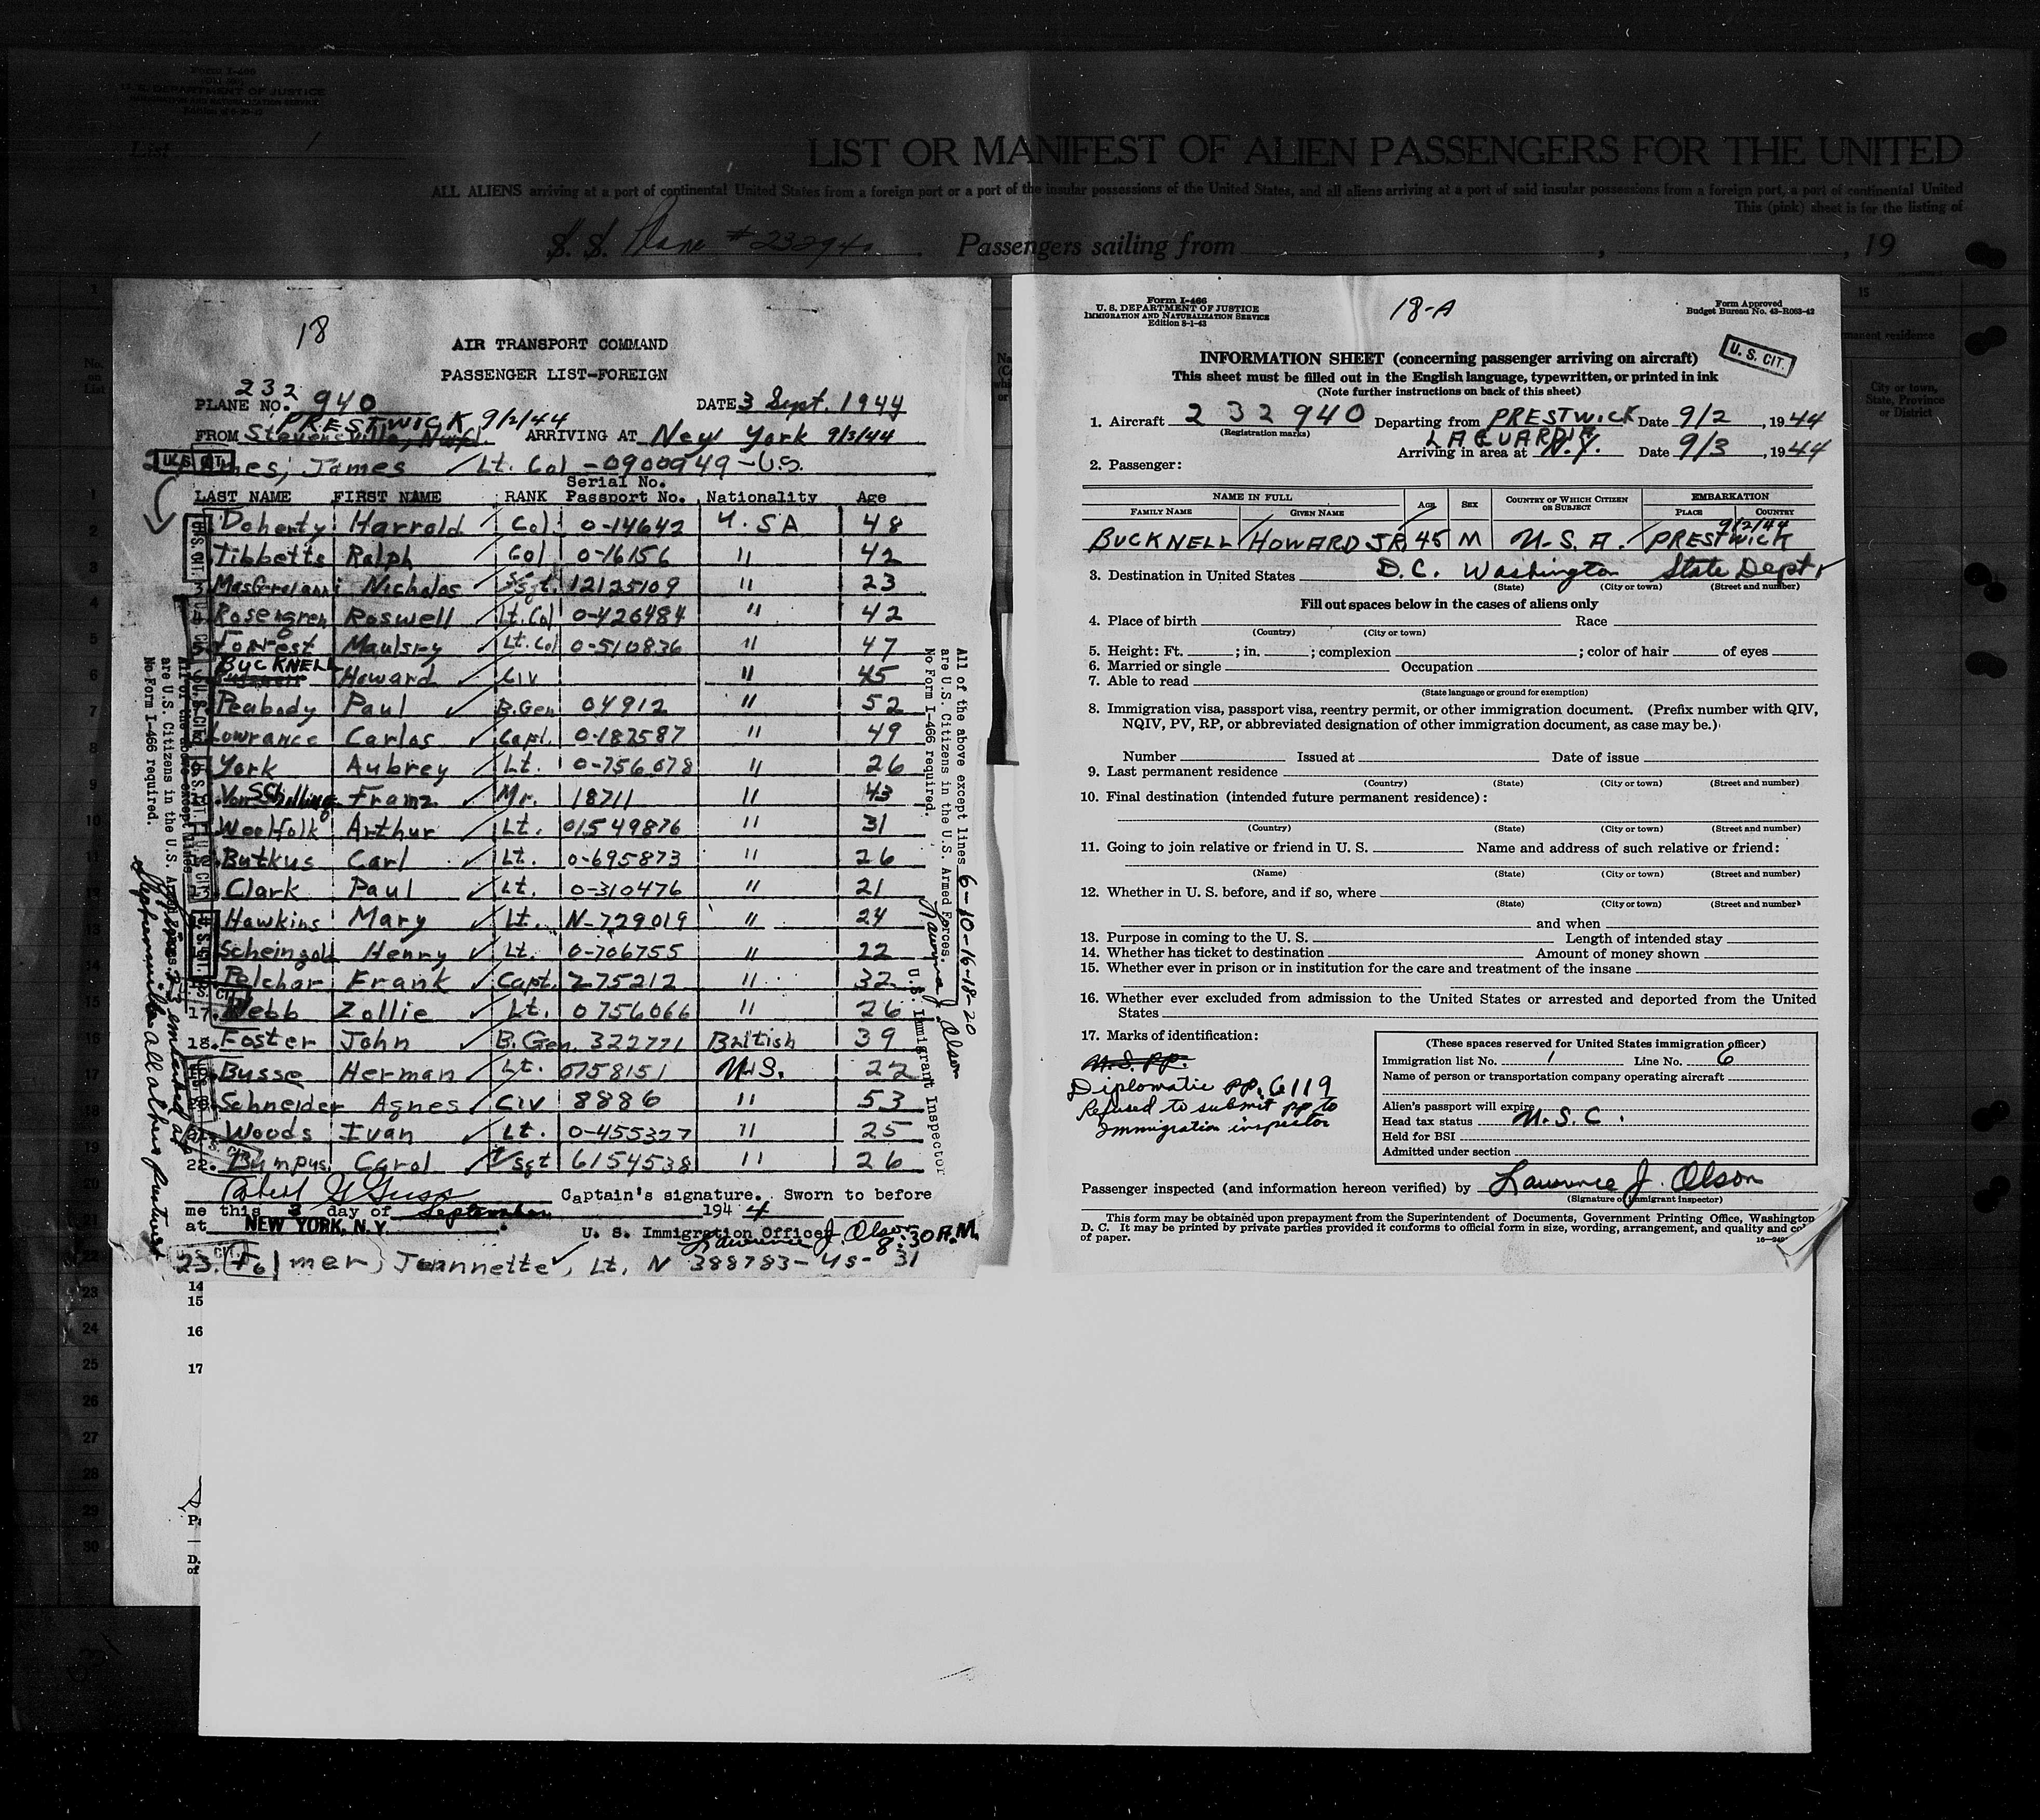 Form I-466
U. S. DEPARTMENT OF JUSTICE
IMMIGRATION AND NATURALIZATION SERVICE
List 1
LIST OR MANIFEST OF ALIEN PASSENGERS FOR THE UNITED
ALL ALIENS arriving at a port of continental United States from a foreign port or a port of the insular possessions of the United States, and all aliens arriving at a port of said insular possessions from a foreign port, a port of continental United
This (pink) sheet is for the listing of
S. S. Plane # 232940 Passengers sailing from , , 19
18
AIR TRANSPORT COMMAND
PASSENGER LIST-FOREIGN
232
PLANE NO. 940 DATE 3 Sept. 1944
PRESTWICK 9/2/44
FROM Stevensville, Nwfd. ARRIVING AT New York 9/3/44
James Lt. Col - 0900949 - U.S.
Serial No.
LAST NAME FIRST NAME RANK Passport No. Nationality Age
Doherty Harrold Col 0-14642 U.SA 48
Tibbetts Ralph Col 0-16156 " 42
3 Nicholas Sgt. 12125109 " 23
Rosengren Roswell Lt.Col 0-426484 " 42
5 Forrest Maulsry Lt.Col 0-510836 " 47
BUCKNELL
6 Howard Civ " 45
Peabody Paul B.Gen 04912 " 52
Lowrance Carlos Capt. 0-187587 " 49
York Aubrey Lt. 0-756078 " 26
10. Von Schilling Franz Mr. 18711 " 43
Woolfolk Arthur Lt. 01549876 " 31
12. Butkus Carl Lt. 0-695873 " 26
13. Clark Paul Lt. 0-310476 " 21
Hawkins Mary Lt. N-729019 " 24
Scheingold Henry Lt. 0-706755 " 22
Pelchar Frank Capt. Z-75212 " 32
17. Webb Zollie Lt. 0756066 " 26
18. Foster John B.Gen. 322771 British 39
Busse Herman Lt. 0758151 U.S. 22
Schneider Agnes Civ 8886 " 53
21. Woods Ivan Lt. 0-455327 " 25
22. Bumpus Carol T/Sgt 6154538 " 26
Captain's signature. Sworn to before
me this 3 day of September 1944
at NEW YORK, N.Y.
U. S. Immigration Officer Lawrence J. Olson
8:30 A.M.
23. Folmer, Jeannette, Lt. N 388783 - US - 31
All of the above except lines 6-10-16-18-20
are U.S. Citizens in the U.S. Armed Forces.
No Form I-466 required.
Lawrence J. Olson
U.S. Immigrant Inspector
All of the above except lines
are U.S. Citizens in the U.S. Armed Forces.
No Form I-466 required.
U.S. CIT.
Form I-466
U. S. DEPARTMENT OF JUSTICE
IMMIGRATION AND NATURALIZATION SERVICE
Edition 8-1-43
18-A
Form Approved
Budget Bureau No. 43-R063-42
U. S. CIT.
INFORMATION SHEET (concerning passenger arriving on aircraft)
This sheet must be filled out in the English language, typewritten, or printed in ink
(Note further instructions on back of this sheet)
1. Aircraft 232940 Departing from PRESTWICK Date 9/2, 1944
(Registration marks)
LAGUARDIA
Arriving in area at N.Y. Date 9/3, 1944
2. Passenger:
NAME IN FULL AGE SEX COUNTRY OF WHICH CITIZEN OR SUBJECT EMBARKATION
FAMILY NAME GIVEN NAME PLACE COUNTRY
9/2/44
BUCKNELL HOWARD JR. 45 M U.S.A. PRESTWICK
3. Destination in United States D.C. Washington State Dept.
(State) (City or town) (Street and number)
Fill out spaces below in the cases of aliens only
4. Place of birth Race
(Country) (City or town)
5. Height: Ft. ; in. ; complexion ; color of hair of eyes
6. Married or single Occupation
7. Able to read
(State language or ground for exemption)
8. Immigration visa, passport visa, reentry permit, or other immigration document. (Prefix number with QIV,
NQIV, PV, RP, or abbreviated designation of other immigration document, as case may be.)
Number Issued at Date of issue
9. Last permanent residence
(Country) (State) (City or town) (Street and number)
10. Final destination (intended future permanent residence):
(Country) (State) (City or town) (Street and number)
11. Going to join relative or friend in U. S. Name and address of such relative or friend:
(Name) (State) (City or town) (Street and number)
12. Whether in U. S. before, and if so, where
(State) (City or town) (Street and number)
and when
13. Purpose in coming to the U. S. Length of intended stay
14. Whether has ticket to destination Amount of money shown
15. Whether ever in prison or in institution for the care and treatment of the insane
16. Whether ever excluded from admission to the United States or arrested and deported from the United
States
17. Marks of identification:
U.S. pp.
Diplomatic pp. 6119
Refused to submit pp to
Immigration inspector
(These spaces reserved for United States immigration officer)
Immigration list No. 1 Line No. 6
Name of person or transportation company operating aircraft
Alien's passport will expire
Head tax status U.S.C.
Held for BSI
Admitted under section
Passenger inspected (and information hereon verified) by Lawrence J. Olson
(Signature of immigrant inspector)
This form may be obtained upon prepayment from the Superintendent of Documents, Government Printing Office, Washington
D. C. It may be printed by private parties provided it conforms to official form in size, wording, arrangement, and quality and
of paper.